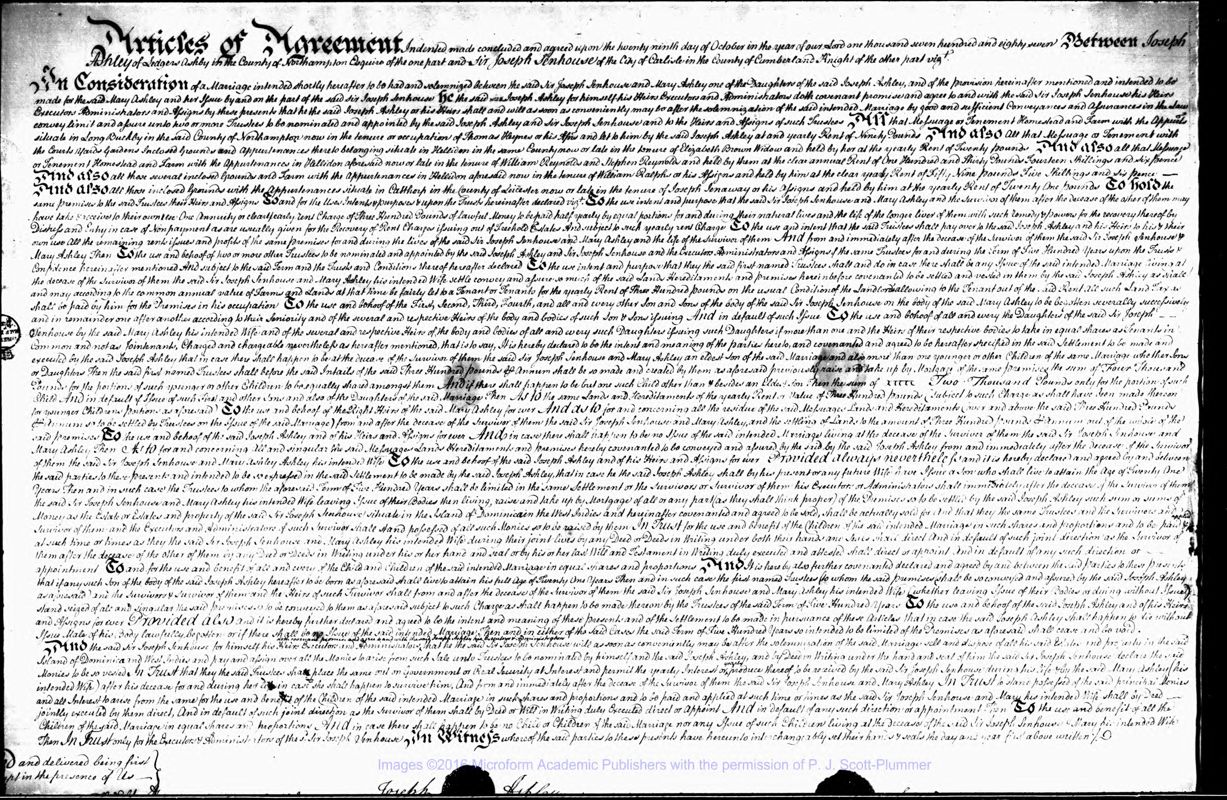 Articles of Agreement Indented made concluded and agreed upon the twenty ninth day of October in the year of our Lord one thousand seven hundred and eighty seven Between Joseph
Ashley of Ledgers Ashby in the County of Northampton Esquire of the one part and Sir Joseph Senhouse of the City of Carlisle in the County of Cumberland Knight of the other part
In Consideration of a Marriage intended shortly hereafter to be had and solemnized between the said Sir Joseph Senhouse and Mary Ashley one of the Daughters of the said Joseph Ashley, and of the provision hereinafter mentioned and intended to be
made for the said Mary Ashley and her Issue by and on the part of the said Sir Joseph Senhouse He the said Joseph Ashley for himself his Heirs Executors and Administrators doth covenant promise and agree to and with the said Sir Joseph Senhouse his Heirs
Executors Administrators and Assigns by these presents that he the said Joseph Ashley or his Heirs shall and will as soon as conveniently may be after the solemnization of the said intended Marriage by good and sufficient Conveyances and Assurances in the Law
convey limit and assure unto two or more Trustees to be nominated and appointed by the said Joseph Ashley and Sir Joseph Senhouse and to the Heirs and Assigns of such Trustees All that Messuage or Tenement Homestead and Farm with the Appurts
situate in Long Buckby in the said County of Northampton now in the tenure or occupation of Thomas Heynes or his Assigns and let to him by the said Joseph Ashley at and yearly Rent of Ninety Pounds And also All that Messuage or Tenement with
the Courts Yards Gardens Inclosed Grounds and Appurtenances thereto belonging situate in Hellidon in the same County now or late in the tenure of Elizabeth Brown Widow and held by her at the yearly Rent of Twenty pounds And also all that Messuage
or Tenement Homestead and Farm with the Appurtenances in Hellidon aforesaid now or late in the tenure of William Reynolds and Stephen Reynolds and held by them at the clear annual Rent of One Hundred and Thirty Pounds Fourteen Shillings and six pence
And also all those several inclosed Grounds and Farm with the appurtenances in Hellidon aforesaid now in the tenure of William Ralphs or his Assigns and held by him at the clear yearly Rent of Fifty Nine pounds Five Shillings and six pence
And also all those inclosed Grounds with the Appurtenances situate in Catthorp in the County of Leicester now or late in the tenure of Joseph or his Assigns and held by him at the yearly Rent of Twenty One Pounds To hold the
same premises to the said Trustees their Heirs and Assigns To and for the Uses Intents & purposes & upon the Trusts hereinafter declared To the use intent and purpose that the said Sir Joseph Senhouse and Mary Ashley and the Survivor of them after the decease of the other of them may
have take & receive to their own use One Annuity or clear yearly rent Charge of Three Hundred Pounds of lawful Money to be paid half yearly by equal portions for and during their natural lives and the life of the longer liver of them with such remedy & powers for the recovery thereof by
Distress and Entry in case of Nonpayment as are usually given for the Recovery of Rent Charges issuing out of Freehold Estates And subject to such yearly rent Charge To the use and intent that the said Trustees shall pay over to the said Joseph Ashley and his Heirs to his & their
own use All the remaining rents issues and profits of the same premises for and during the lives of the said Sir Joseph Senhouse and Mary Ashley and the life of the Survivor of them And from and immediately after the decease of the Survivor of them the said Sir Joseph Senhouse &
Mary Ashley Then To the use and behoof of two or more other Trustees to be nominated and appointed by the said Joseph Ashley and Sir Joseph Senhouse and the Executors Administrators and Assigns of the same Trustees for and during the Term of Five Hundred Years upon the Trusts
Confidence hereinafter mentioned And subject to the said Term and the Trusts and Conditions thereof hereafter declared To the use intent and purpose that they the said first named Trustees shall and do in case there shall be any Issue of the said intended Marriage living at
the decease of the Survivor of them the said Sir Joseph Senhouse and Mary Ashley his intended Wife settle convey and assure so much of the said Lands Hereditaments and premises hereinbefore covenanted to be settled and vested in them by the said Joseph Ashley as shall
and may according to the common annual value of Farms and Lands at that time be fairly let to a Tenant or Tenants for the yearly Rent of Three Hundred pounds on the usual Condition of the Landlord allowing to the Tenant out of the said Rent all such Land Tax as
shall be paid by him for the Premises in his occupation To the use and behoof of the First, Second, Third, Fourth, and all and every other Son and Sons of the body of the said Sir Joseph Senhouse on the body of the said Mary Ashley to be begotten severally successively
and in remainder one after another according to their Seniority and of the several and respective Heirs of the body and bodies of such Son & Sons issuing And in default of such Issue To the use and behoof of all and every the Daughters of the said Sir Joseph
Senhouse by the said Mary Ashley his intended Wife and of the several and respective Heirs of the body and bodies of all and every such Daughters issuing such Daughters if more than one and the Heirs of their respective bodies to take in equal shares as Tenants in
Common and not as Jointenants, Charged and chargeable nevertheless as hereafter mentioned, that is to say, It is hereby declared to be the intent and meaning of the parties hereto, and covenanted and agreed to be hereafter specified in the said Settlement to be made and
executed by the said Joseph Ashley that in case there shall happen to be at the decease of the Survivor of them the said Sir Joseph Senhouse and Mary Ashley an eldest Son of the said Marriage and also more than one younger or other Children of the same Marriage whether Sons
or Daughters Then the said first named Trustees shall before the said Intails of the said Three Hundred pounds Annum shall be so made and created by them as aforesaid previously raise and take up by Mortgage of the same premises the sum of Four Thousand
Pounds for the portion of such younger or other Children to be equally shared amongst them And if there shall happen to be but one such Child other than & besides an Eldest Son Then the sum of Two Thousand Pounds only for the portion of such
Child And in default of Issue of such Sons and other Sons and also of the Daughters of the said Marriage Then As to the same Lands and Hereditaments of the yearly Rent or Value of Three Hundred pounds (subject to such Charge as shall have been made thereon
for younger Childrens portions as aforesaid) To the use and behoof of the Right Heirs of the said Mary Ashley for ever And as to for and concerning all the residue of the said Messuages Lands and Hereditaments (over and above the said Three Hundred Pounds
Annum so to be settled by Trustees on the Issue of the said Marriage) from and after the decease of the Survivor of them the said Sir Joseph Senhouse and Mary Ashley, and the settling of Lands to the amount of Three Hundred pounds Annum out of the whole of the
said premises To the use and behoof of the said Joseph Ashley and of his Heirs and Assigns for ever And in case there shall happen to be no Issue of the said intended Marriage living at the decease of the Survivor of them the said Sir Joseph Senhouse and
Mary Ashley Then As to for and concerning All and singular the said Messuages Lands Hereditaments and premises hereby covenanted to be conveyed and assured by the said Joseph Ashley from and immediately after the decease of the Survivor
of them the said Sir Joseph Senhouse and Mary Ashley his intended Wife To the use and behoof of the said Joseph Ashley and of his Heirs and Assigns for ever Provided always nevertheless and it is hereby declared and agreed by and between
the said parties to these presents and intended to be so expressed in the said Settlement to be made by the said Joseph Ashley, that in case he the said Joseph Ashley shall by his present or any future Wife have Issue a Son who shall live to attain the Age of Twenty One
Years Then and in such case the Trustees to whom the aforesaid Term of Five Hundred Years shall be limited in the same Settlement or the Survivors or Survivor of them his Executors or Administrators shall immediately after the decease of the Survivor of them
the said Sir Joseph Senhouse and Mary Ashley his intended Wife leaving Issue of their Bodies then living, raise and take up by Mortgage of all or any part (as they shall think proper) of the Premises so to be settled by the said Joseph Ashley such sum or sums of
Money as the Estate or Estates and property of the said Sir Joseph Senhouse situate in the Island of Dominica in the West Indies and hereinafter covenanted and agreed to be sold, shall be actually sold for And that they the same Trustees and the Survivors and
Survivor of them and the Executors and Administrators of such Survivor shall stand possessed of all such Monies so to be raised by them In Trust for the use and benefit of the Children of the said intended Marriage in such shares and proportions and to be paid
at such time or times as they the said Sir Joseph Senhouse and Mary Ashley his intended Wife during their joint lives by any Deed or Deeds in Writing under both their hands and Seals shall direct And in default of such joint direction as the Survivor of
them after the decease of the other of them by any Deed or Deeds in Writing under his or her hand and seal or by his or her last Will and Testament in Writing duly executed and attested shall direct or appoint And in default of any such direction or
appointment To and for the use and benefit of all and every of the Child and Children of the said intended Marriage in equal shares and proportions And It is hereby also further covenanted declared and agreed by and between the said Parties to these presents
that if any such Son of the body of the said Joseph Ashley hereafter to be born as aforesaid shall live to attain his full age of Twenty One Years Then and in such case the first named Trustees (to whom the said premises shall be so conveyed and assured by the said Joseph Ashley
as aforesaid) and the Survivors & Survivor of them and the Heirs of such Survivor shall from and after the decease of the Survivor of them the said Sir Joseph Senhouse and Mary Ashley his intended Wife (whether leaving Issue of their Bodies or dying without Issue)
stand seized of all and singular the said premises so to be conveyed to them as aforesaid subject to such Charge as shall happen to be made thereon by the Trustees of the said Term of Five Hundred Years To the use and behoof of the said Joseph Ashley and of his Heirs
and Assigns for ever Provided also and it is hereby further declared and agreed to be the intent and meaning of these presents and of the Settlement to be made in pursuance of these Articles that in case the said Joseph Ashley shall happen to die without
Issue Male of his Body lawfully begotten or if there shall be no Issue of the said intended Marriage Then and in either of the said Cases the said Term of Five Hundred Years so intended to be limited of the Premises as aforesaid shall cease and be void.
And the said Sir Joseph Senhouse for himself his Heirs Executors and Administrators that he the said Sir Joseph Senhouse will as soon as conveniently may be after the solemnization of the said Marriage sell and dispose of all his said Estate and property in the said
Island of Dominica and West Indies and pay and assign over all the Monies to arise from such Sale unto Trustees to be nominated by himself and the said Joseph Ashley, and by Deed in Writing under the hand and seal of him the said Sir Joseph Senhouse declare the said
Monies to be so vested In Trust that they the said Trustees shall place the same out on Government or Real Security at Interest and permit the yearly Interest or produce thereof to be received by the said Sir Joseph Senhouse during his life & by the said Mary Ashley (his
intended Wife) after his decease for and during her life in case she shall happen to survive him, And from and immediately after the decease of the Survivor of them the said Sir Joseph Senhouse and Mary Ashley In Trust to stand possessed of the said principal Monies
and all Interest to arise from the same for the use and benefit of the Children of the said intended Marriage in such shares and proportions and to be paid and applied at such time or times as the said Sir Joseph Senhouse and Mary his intended Wife shall by Deed
jointly executed by them direct, And in default of such joint direction as the Survivor of them shall by Deed or Will in Writing duly Executed direct or appoint And in default of any such direction or appointment Then To the use and benefit of all the
Children of the said Marriage in equal shares and proportions And in case there shall happen to be no Child or Children of the said Marriage nor any Issue of such Children living at the decease of the said Sir Joseph Senhouse & Mary his intended Wife
Then In Trust only for the Executors & Administrators of the sd Sir Joseph Senhouse In Witness whereof the said parties to these presents have hereunto interchangeably set their hands & seals the day and year first above written
and delivered being first
in the presence of Us
Joseph Ashley
Images ©2016 Microform Academic Publishers with the permission of P. J. Scott-Plummer